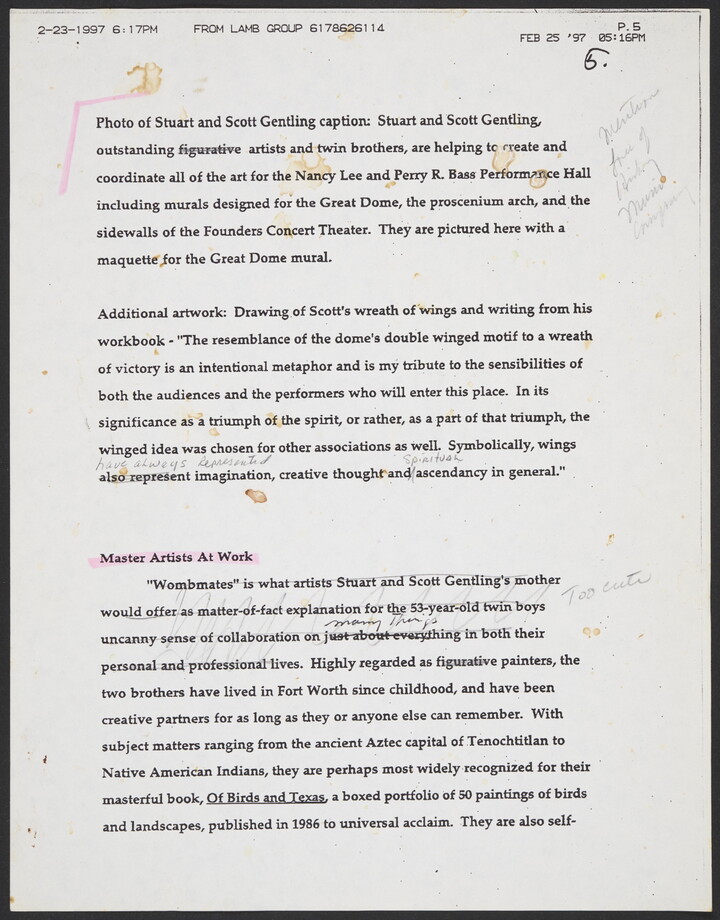 2-23-1997 6:17PM FROM LAMB GROUP 6178626114 P.5
FEB 25 '97 05:16PM
5.
Photo of Stuart and Scott Gentling caption: Stuart and Scott Gentling,
outstanding figurative artists and twin brothers, are helping to create and
coordinate all of the art for the Nancy Lee and Perry R. Bass Performance Hall
including murals designed for the Great Dome, the proscenium arch, and the
sidewalls of the Founders Concert Theater. They are pictured here with a
maquette for the Great Dome mural.
Mention
of
Additional artwork: Drawing of Scott's wreath of wings and writing from his
workbook - "The resemblance of the dome's double winged motif to a wreath
of victory is an intentional metaphor and is my tribute to the sensibilities of
both the audiences and the performers who will enter this place. In its
significance as a triumph of the spirit, or rather, as a part of that triumph, the
winged idea was chosen for other associations as well. Symbolically, wings
have always represented spiritual
also represent imagination, creative thought and/ascendancy in general."
Master Artists At Work
"Wombmates" is what artists Stuart and Scott Gentling's mother
Too cute
would offer as matter-of-fact explanation for the 53-year-old twin boys
many things
uncanny sense of collaboration on just about everything in both their
personal and professional lives. Highly regarded as figurative painters, the
two brothers have lived in Fort Worth since childhood, and have been
creative partners for as long as they or anyone else can remember. With
subject matters ranging from the ancient Aztec capital of Tenochtitlan to
Native American Indians, they are perhaps most widely recognized for their
masterful book, Of Birds and Texas, a boxed portfolio of 50 paintings of birds
and landscapes, published in 1986 to universal acclaim. They are also self-